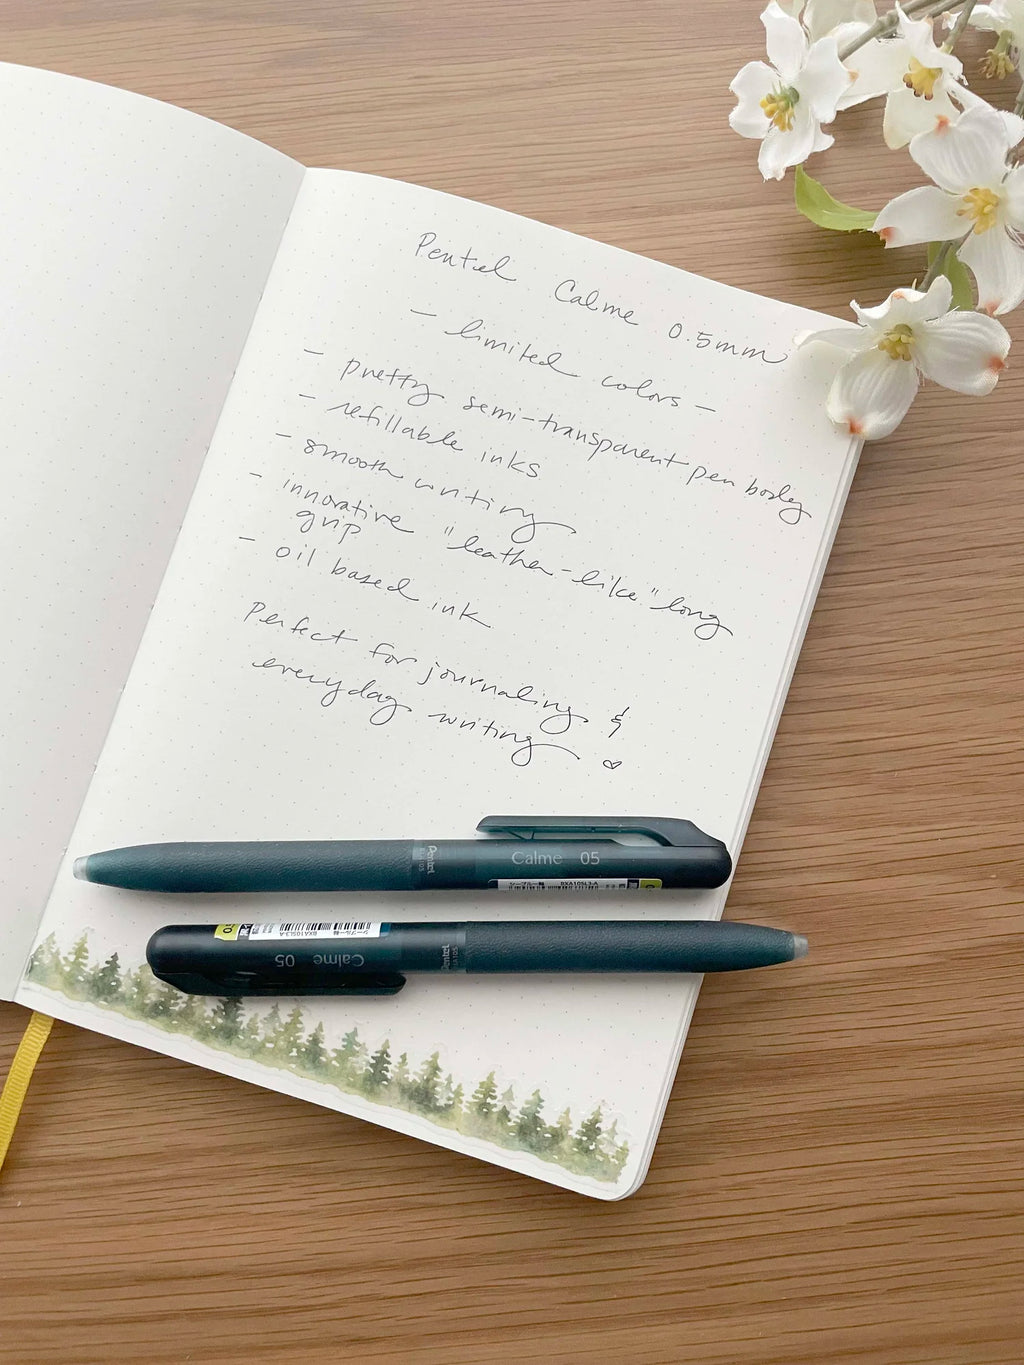 Pentel Calme 0.5mm
- limited colors -
- pretty semi-transparent pen body
- refillable inks
- smooth writing
- innovative "leather-like" long
grip
- oil based ink
Perfect for journaling &
everyday writing ♡
Pentel
Calme 05
シーブルー軸 BXA105L3-A
Calme 05
シーブルー軸 BXA105L3-A
Pentel